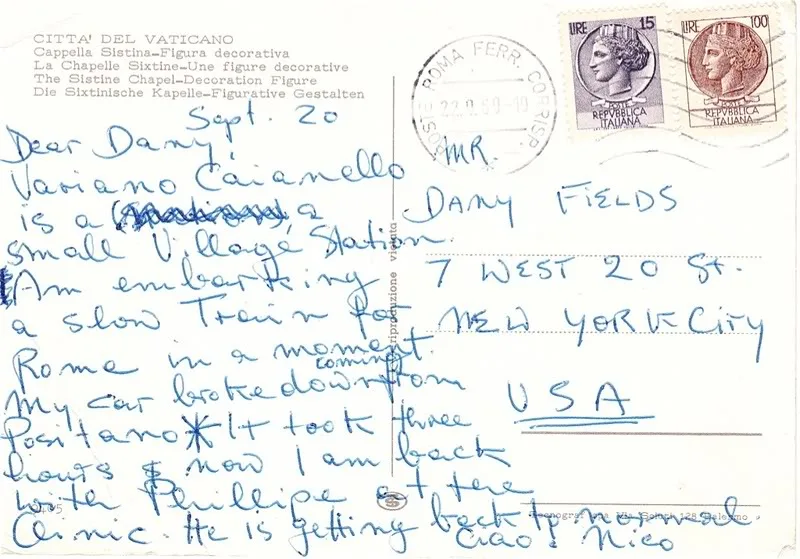 CITTA' DEL VATICANO
Cappella Sistina-Figura decorativa
La Chapelle Sixtine-Une figure decorative
The Sistine Chapel-Decoration Figure
Die Sixtinische Kapelle-Figurative Gestalten
POSTE ROMA FERR. CORRISP.
22.9.69-19
LIRE 15
POSTE
REPVBBLICA
ITALIANA
LIRE 100
POSTE
REPVBBLICA
ITALIANA
Sept. 20
Dear Dany,
Variano Caianello
is a a
small Village Station.
Am embarking
a slow Train for
Rome in a moment.
My car broke down coming from
Positano * It took three
hours & now I am back
with Phillipe at the
Clinic. He is getting back to normal
Ciao! Nico
MR.
DANY FIELDS
7 WEST 20 St.
NEW YORK CITY
USA
riproduzione vietata